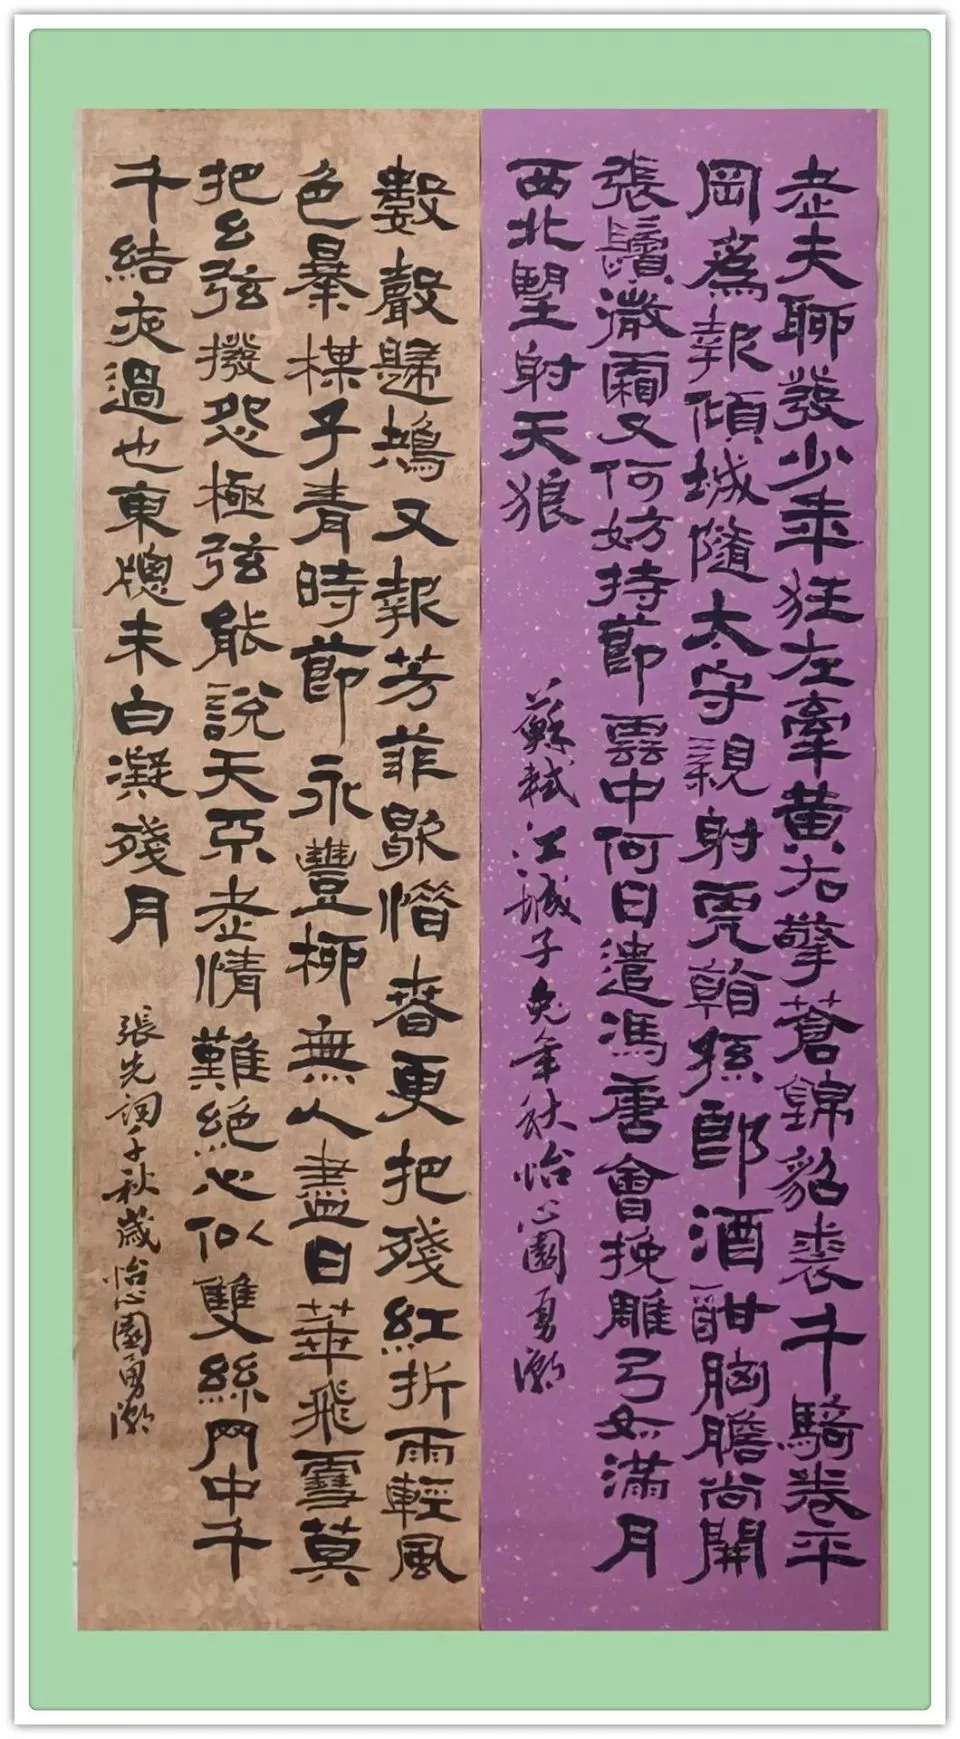 老夫聊發少年狂左牽黃右擎蒼錦貂裘千騎卷平
岡為報傾城隨太守親射虎看孫郎酒酣胸膽尚開
張鬢微霜又何妨持節雲中何日遣馮唐會挽雕弓如滿月
西北望射天狼
蘇軾江城子兔年秋怡心園勇
數聲鶗鴂又報芳菲歇惜春更把殘紅折雨輕風
色暴楳子青時節永豐柳無人盡日華飛雪莫
把幺弦撥怨極弦能說天不老情難絕心似雙絲网中千
千結夜過也東窗未白凝殘月
張先詞千秋歲怡心園勇